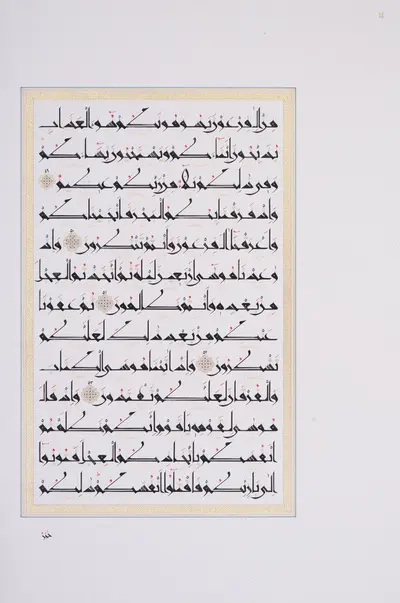 مِّنْ ءَالِ فِرْعَوْنَ يَسُومُونَكُمْ سُوٓءَ ٱلْعَذَابِ
يُذَبِّحُونَ أَبْنَآءَكُمْ وَيَسْتَحْيُونَ نِسَآءَكُمْ
وَفِى ذَٰلِكُم بَلَآءٌ مِّن رَّبِّكُمْ عَظِيمٌ
وَإِذْ فَرَقْنَا بِكُمُ ٱلْبَحْرَ فَأَنجَيْنَٰكُمْ
وَأَغْرَقْنَآ ءَالَ فِرْعَوْنَ وَأَنتُمْ تَنظُرُونَ وَإِذْ
وَٰعَدْنَا مُوسَىٰٓ أَرْبَعِينَ لَيْلَةً ثُمَّ ٱتَّخَذْتُمُ ٱلْعِجْلَ
مِنۢ بَعْدِهِۦ وَأَنتُمْ ظَٰلِمُونَ ثُمَّ عَفَوْنَا
عَنكُم مِّنۢ بَعْدِ ذَٰلِكَ لَعَلَّكُمْ
تَشْكُرُونَ وَإِذْ ءَاتَيْنَا مُوسَى ٱلْكِتَٰبَ
وَٱلْفُرْقَانَ لَعَلَّكُمْ تَهْتَدُونَ وَإِذْ قَالَ
مُوسَىٰ لِقَوْمِهِۦ يَٰقَوْمِ إِنَّكُمْ ظَلَمْتُمْ
أَنفُسَكُم بِٱتِّخَاذِكُمُ ٱلْعِجْلَ فَتُوبُوٓا۟
إِلَىٰ بَارِئِكُمْ فَٱقْتُلُوٓا۟ أَنفُسَكُمْ ذَٰلِكُمْ
خَيْرٌ